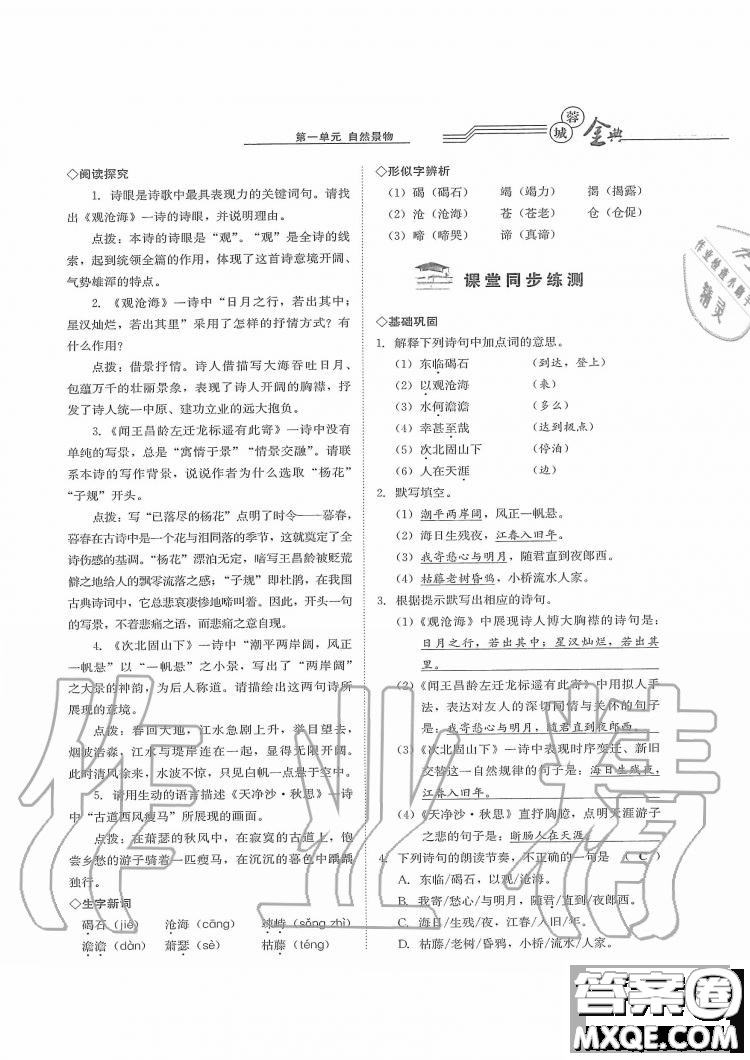 第一单元 自然景物
蓉城金典
◇阅读探究
1. 诗眼是诗歌中最具表现力的关键词句。请找
出《观沧海》一诗的诗眼，并说明理由。
点拨：本诗的诗眼是“观”。“观”是全诗的线
索，起到统领全篇的作用，体现了这首诗意境开阔、
气势雄浑的特点。
2. 《观沧海》一诗中“日月之行，若出其中；
星汉灿烂，若出其里”采用了怎样的抒情方式？有
什么作用？
点拨：借景抒情。诗人借描写大海吞吐日月、
包蕴万千的壮丽景象，表现了诗人开阔的胸襟，抒
发了诗人统一中原、建功立业的远大抱负。
3. 《闻王昌龄左迁龙标遥有此寄》一诗中没有
单纯的写景，总是“寓情于景”“情景交融”。请联
系本诗的写作背景，说说作者为什么选取“杨花”
“子规”开头。
点拨：写“已落尽的杨花”点明了时令——暮春，
暮春在古诗中是一个花与泪同落的季节，这就奠定了全
诗伤感的基调。“杨花”漂泊无定，暗写王昌龄被贬荒
僻之地给人的飘零流落之感；“子规”即杜鹃，在我国
古典诗词中，它总悲哀凄惨地啼叫着。因此，开头一句
的写景，不着悲痛之语，而悲痛之意自现。
4. 《次北固山下》一诗中“潮平两岸阔，风正
一帆悬”以“一帆悬”之小景，写出了“两岸阔”
之大景的神韵，为后人称道。请描绘出这两句诗所
展现的意境。
点拨：春回大地，江水急剧上升，举目望去，
烟波浩淼，江水与堤岸连在一起，显得无限开阔。
此时清风徐来，水波不惊，只见白帆一点悬于空中。
5. 请用生动的语言描述《天净沙·秋思》一诗
中“古道西风瘦马”所展现的画面。
点拨：在萧瑟的秋风中，在寂寞的古道上，饱
尝乡愁的游子骑着一匹瘦马，在沉沉的暮色中踽踽
独行。
◇生字新词
碣石（jié） 沧海（cāng） 竦峙（sǒng zhì）
澹澹（dàn） 萧瑟（sè） 枯藤（téng）
◇形似字辨析
（1）碣（碣石） 竭（竭力） 揭（揭露）
（2）沧（沧海） 苍（苍老） 仓（仓促）
（3）啼（啼哭） 谛（真谛）
课堂同步练测
◇基础巩固
1. 解释下列诗句中加点词的意思。
（1）东临碣石 （到达，登上）
（2）以观沧海 （来）
（3）水何澹澹 （多么）
（4）幸甚至哉 （达到极点）
（5）次北固山下 （停泊）
（6）人在天涯 （边）
2. 默写填空。
（1）潮平两岸阔，风正一帆悬。
（2）海日生残夜，江春入旧年。
（3）我寄愁心与明月，随君直到夜郎西。
（4）枯藤老树昏鸦，小桥流水人家。
3. 根据提示默写出相应的诗句。
（1）《观沧海》中展现诗人博大胸襟的诗句是：
日月之行，若出其中；星汉灿烂，若出其
里。
（2）《闻王昌龄左迁龙标遥有此寄》中用拟人手
法，表达对友人的深切同情与关怀的句子
是：我寄愁心与明月，随君直到夜郎西。
（3）《次北固山下》一诗中表现时序变迁、新旧
交替这一自然规律的句子是：海日生残夜，
江春入旧年。
（4）《天净沙·秋思》直抒胸臆，点明天涯游子
之悲的句子是：断肠人在天涯。
4. 下列诗句的朗读节奏，不正确的一句是 （ C ）
A. 东临/碣石，以观/沧海。
B. 我寄/愁心/与/明月，随君/直到/夜郎西。
C. 海日/生/残夜，江春/入旧/年。
D. 枯藤/老树/昏鸦，小桥/流水/人家。
作业精
作业检查小助手
精灵
答案圈
MXQE.COM